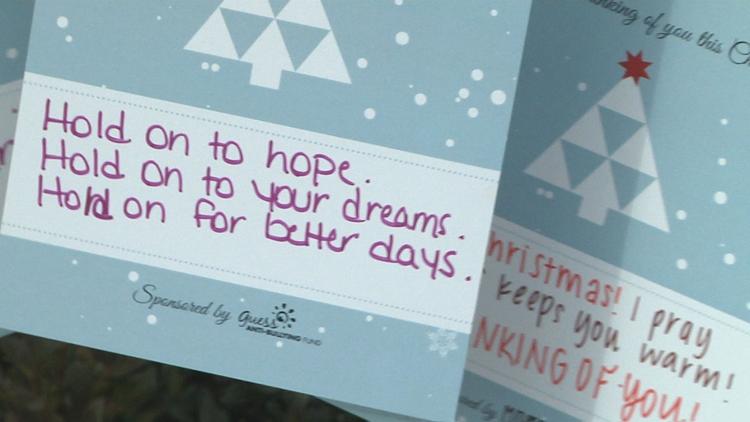 Hold on to hope.
Hold on to your dreams.
Hold on for better days.
Sponsored by guess
ANTI-BULLYING FUND
of you this
hristmas! I pray
keeps you warm!
NKING OF YOU!
by